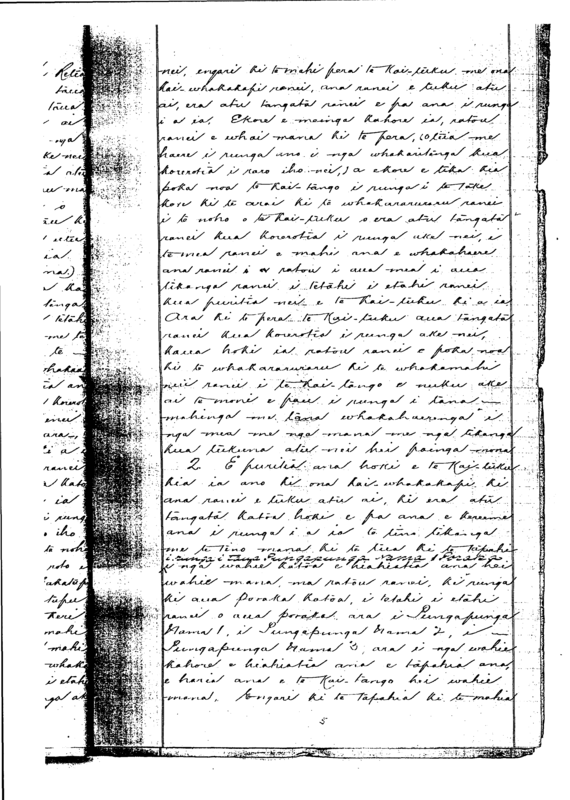 Retia
tācca
tācca
ai
-nga
ke nei
ia atu
me ma
- o
āu k
ia.
ma.)
ka
tānga
tetahi
me te
te
ia an
korero
enei
ara,
i a e
ranei
katoa
ia
i rung
o iho
te noho
roto e
tapu
keri
mahi
mahi
whaka
i etahi
ga ak
nei, engari ki te mahi pera te Kai-tuku me ona
kai-whakakapi ranei, ana ranei e tuku atu
ai, era atu tangata ranei e pa ana i runga
i a ia. Ekore e meinga kahore ia, ratou
ranei e whai mana ki te pera, (otiia me
haere i runga ano i nga whakaritanga kua
korerotia i raro iho nei,) a ekore e tika kia
poka noa te Kai-tango i runga i te take
kore ki te arai ki te whakararuraru ranei
i te noho o te Kai-tuku o era atu tangata
ranei kua korerotia i runga ake nei, i
te mea ranei e mahi ana e whakahaere
ana ranei i a ratou i aua mea i aua
tikanga ranei i tetahi i etahi ranei
kua puritia nei e te Kai-tuku ki a ia
Ara ki te pera te Kai-tuku aua tangata
ranei kua korerotia i runga ake nei,
kaua hoki ia ratou ranei e poka noa
ki te whakararuraru ki te whakamahi
nui ranei i te Kai-tango e nuku ake
ai te moni e pau i runga i tana
mahinga me tana whakahaerenga i
nga mea me nga mana me nga tikanga
kua tukuna atu nei hei painga mona
2 E puritia ana hoki e te Kai-tuku
kia ia ano ki ona kai-whakakapi, ki
ana ranei e tuku atu ai, ki era atu
tangata katoa hoki e pa ana e kereme
ana i runga i a ia te tino tikanga
me te tino mana ki te tiki ki te tapahi
i nga wahie katoa e hiahiatia ana hei
wahie mana, ma ratou ranei, ki runga
ki aua poraka katoa, i tetahi i etahi
ranei o aua poraka ara i Pungapunga
Nama 1, i Pungapunga Nama 2, i
Pungapunga Nama 3, ara i nga wahie
kahore e hiahiatia ana e tapahia ana,
e haria ana e te Kai-tango hei wahie
mana. Engari ki te tapahia ki te mahia
5